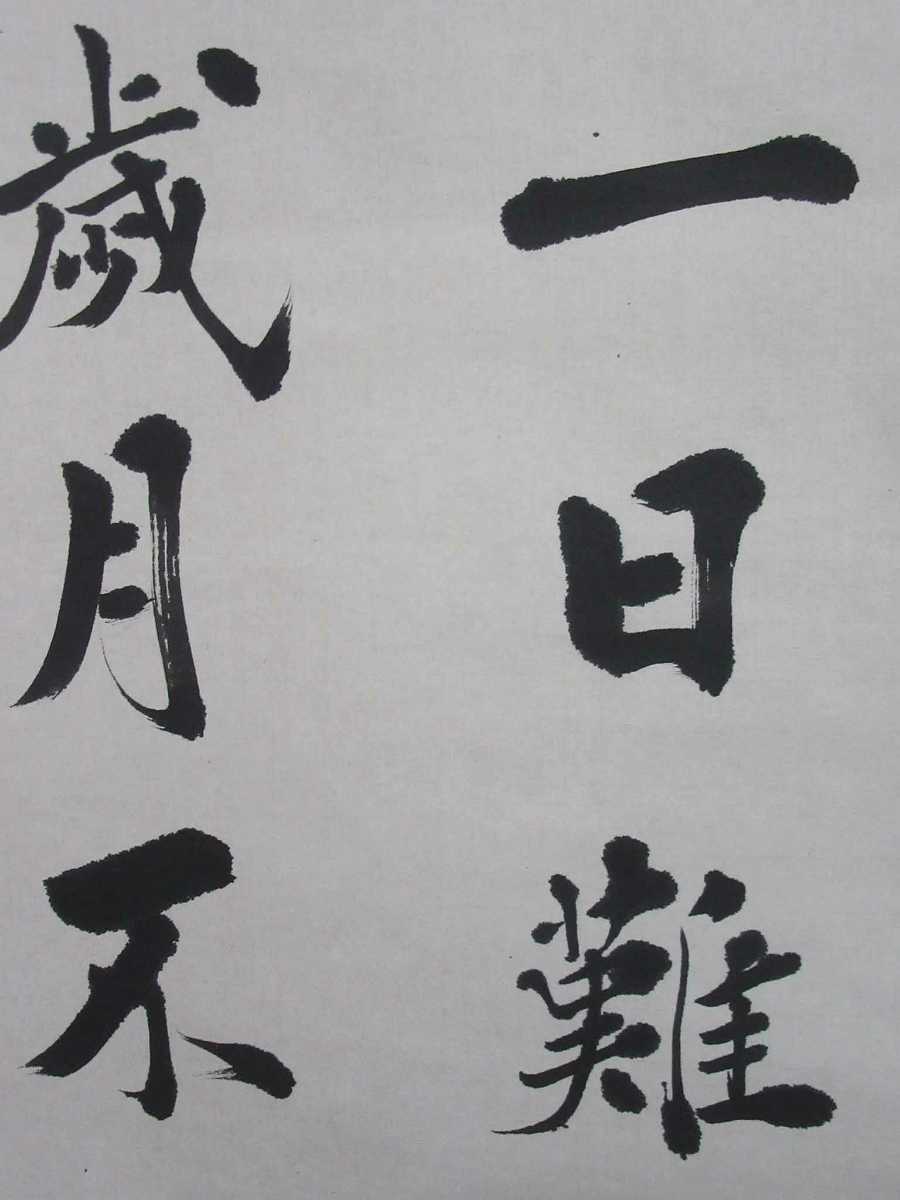 一日難
歲月不